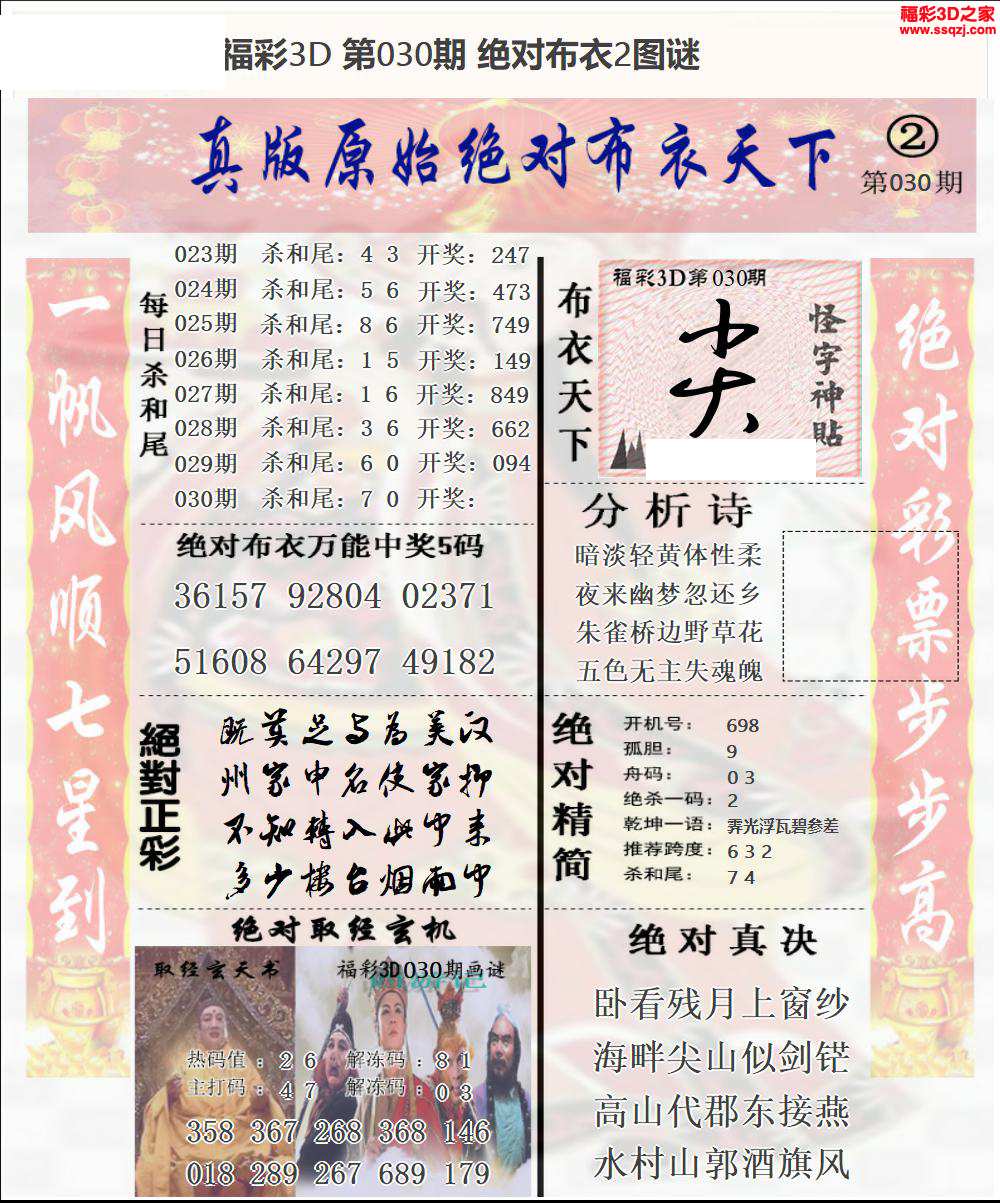 福彩3D之家
www.ssqzj.com
福彩3D 第030期 绝对布衣2图谜
真版原始绝对布衣天下
②
第030期
一帆风顺七星到
每日杀和尾
023期 杀和尾：4 3 开奖：247
024期 杀和尾：5 6 开奖：473
025期 杀和尾：8 6 开奖：749
026期 杀和尾：1 5 开奖：149
027期 杀和尾：1 6 开奖：849
028期 杀和尾：3 6 开奖：662
029期 杀和尾：6 0 开奖：094
030期 杀和尾：7 0 开奖：
绝对布衣万能中奖5码
36157 92804 02371
51608 64297 49182
絕對正彩
既莫足与为美汉
州家申名使家抑
不知转入此中来
多少楼台烟雨中
绝对取经玄机
取经玄天书
福彩3D030期画谜
热码值：2 6 解冻码：8 1
主打码：4 7 解冻码：0 3
358 367 268 368 146
018 289 267 689 179
布衣天下
福彩3D第030期
怪字神貼
分析诗
暗淡轻黄体性柔
夜来幽梦忽还乡
朱雀桥边野草花
五色无主失魂魄
绝对精简
开机号： 698
孤胆： 9
舟码： 0 3
绝杀一码：2
乾坤一语：霁光浮瓦碧参差
推荐跨度：6 3 2
杀和尾： 7 4
绝对真决
卧看残月上窗纱
海畔尖山似剑铓
高山代郡东接燕
水村山郭酒旗风
绝对彩票步步高